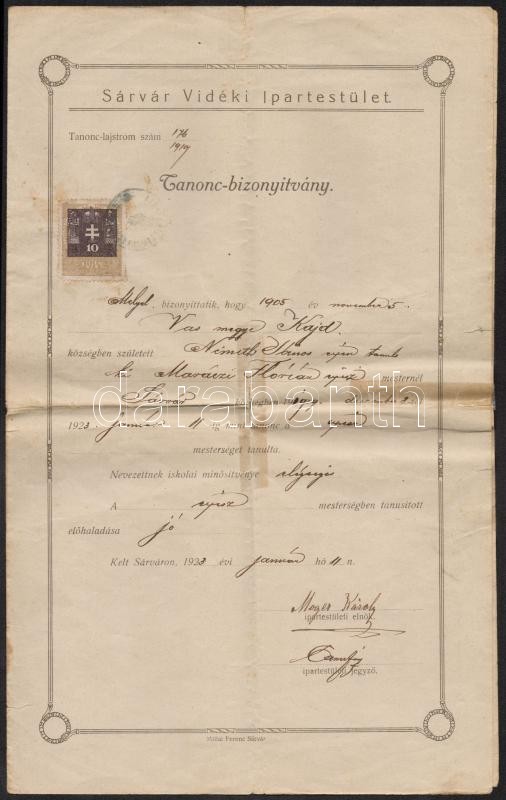 Sárvár Vidéki Ipartestület.
Tanonc-lajstrom szám 176
1919
Tanonc-bizonyitvány.
10
Melyel bizonyittatik, hogy 1905 év november 5.
Vas megye Kajd
községben született Németh János
Maráczi Flórián mesternél
Sárvár
darabanth
1923 január 11-ig mint tanonc a
mesterséget tanulta.
Nevezettnek iskolai minősitvénye elégséges
A mesterségben tanusított
előhaladása jó
Kelt Sárváron, 1923 évi január hó 11 n.
Moger Károly
ipartestületi elnök.
ipartestületi jegyző.
Ferenc Sárvár